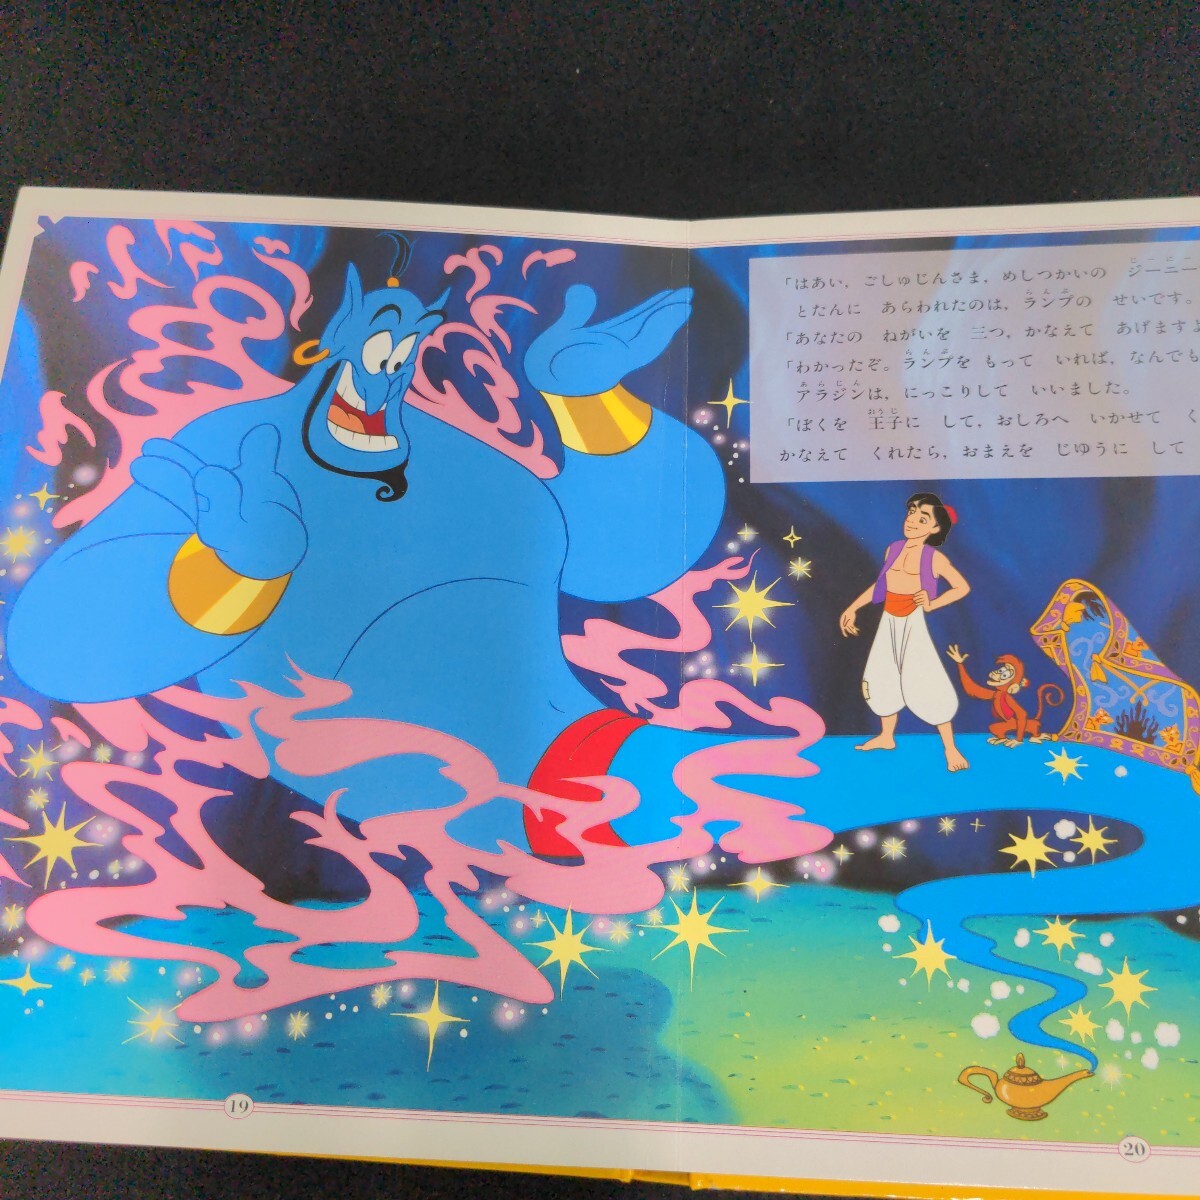 「はあい,ごしゅじんさま,めしつかいの ジーニー
とたんに あらわれたのは,ランプの せいです。
「あなたの ねがいを 三つ,かなえて あげますよ
「わかったぞ。ランプを もって いれば,なんでも
アラジンは,にっこりして いいました。
「ぼくを 王子に して,おしろへ いかせて く
かなえて くれたら,おまえを じゆうに して
19
20